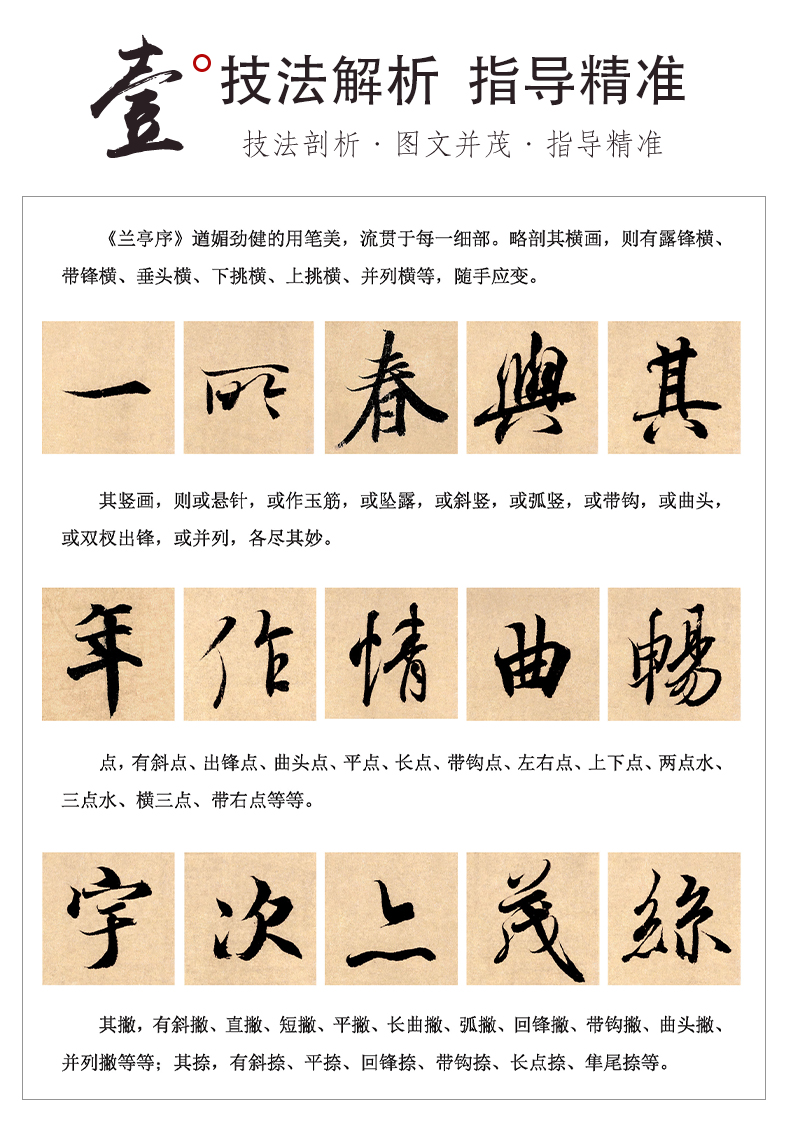 壹 技法解析 指导精准
技法剖析·图文并茂·指导精准
《兰亭序》遒媚劲健的用笔美，流贯于每一细部。略剖其横画，则有露锋横、
带锋横、垂头横、下挑横、上挑横、并列横等，随手应变。
一 所 春 興 其
其竖画，则或悬针，或作玉筋，或坠露，或斜竖，或弧竖，或带钩，或曲头，
或双杈出锋，或并列，各尽其妙。
年 作 情 曲 暢
点，有斜点、出锋点、曲头点、平点、长点、带钩点、左右点、上下点、两点水、
三点水、横三点、带右点等等。
宇 次 上 茂 絲
其撇，有斜撇、直撇、短撇、平撇、长曲撇、弧撇、回锋撇、带钩撇、曲头撇、
并列撇等等；其捺，有斜捺、平捺、回锋捺、带钩捺、长点捺、隼尾捺等。